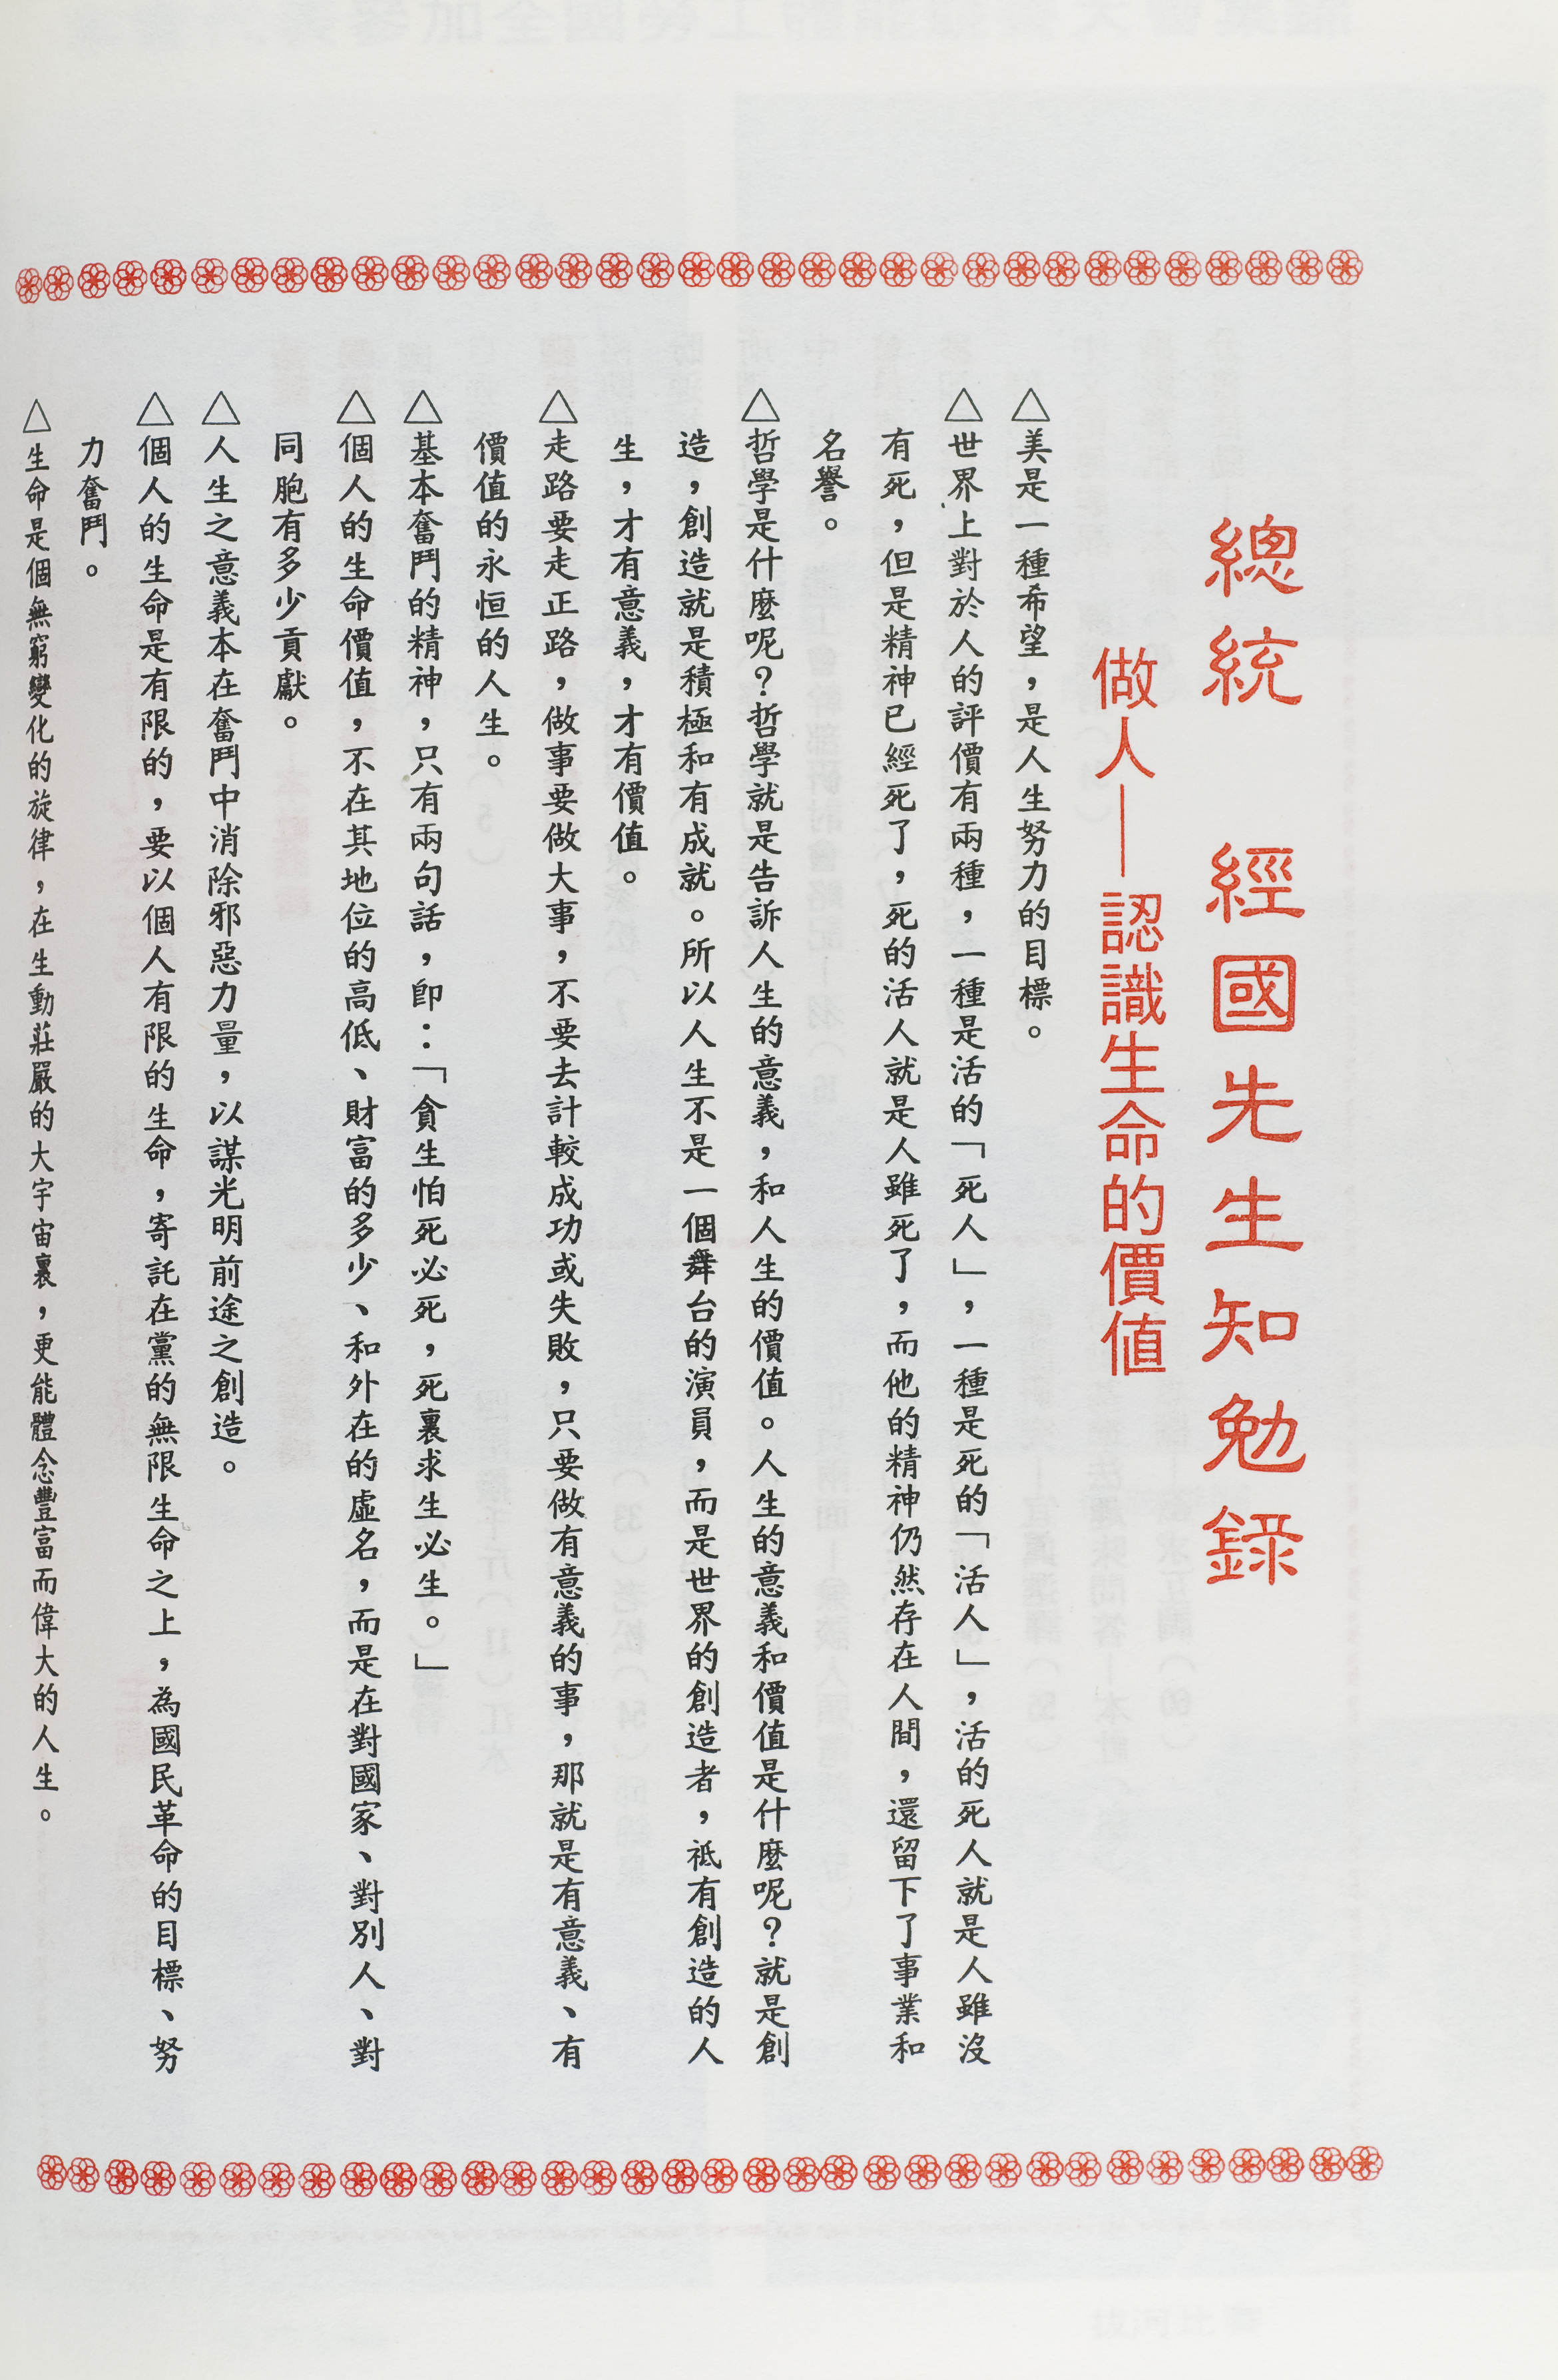 總統　經國先生知勉錄
做人——認識生命的價值
△美是一種希望，是人生努力的目標。
△世界上對於人的評價有兩種，一種是活的「死人」，一種是死的「活人」，活的死人就是人雖沒
有死，但是精神已經死了，死的活人就是人雖死了，而他的精神仍然存在人間，還留下了事業和
名譽。
△哲學是什麼呢？哲學就是告訴人生的意義，和人生的價值。人生的意義和價值是什麼呢？就是創
造，創造就是積極和有成就。所以人生不是一個舞台的演員，而是世界的創造者，祇有創造的人
生，才有意義，才有價值。
△走路要走正路，做事要做大事，不要去計較成功或失敗，只要做有意義的事，那就是有意義、有
價值的永恒的人生。
△基本奮鬥的精神，只有兩句話，卽：「貪生怕死必死，死裏求生必生。」
△個人的生命價值，不在其地位的高低、財富的多少、和外在的虛名，而是在對國家、對別人、對
同胞有多少貢獻。
△人生之意義本在奮鬥中消除邪惡力量，以謀光明前途之創造。
△個人的生命是有限的，要以個人有限的生命，寄託在黨的無限生命之上，為國民革命的目標、努
力奮鬥。
△生命是個無窮變化的旋律，在生動莊嚴的大宇宙裏，更能體念豐富而偉大的人生。